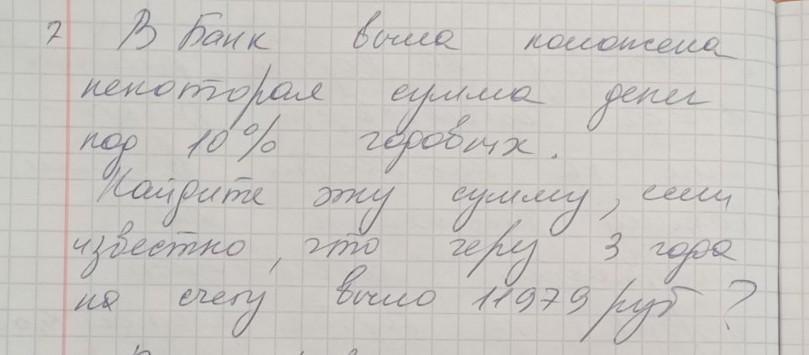 7 В Банк была положена
некоторая сумма денег
под 10% годовых.
Найдите эту сумму, если
известно, что через 3 года
на счету было 11979 руб?